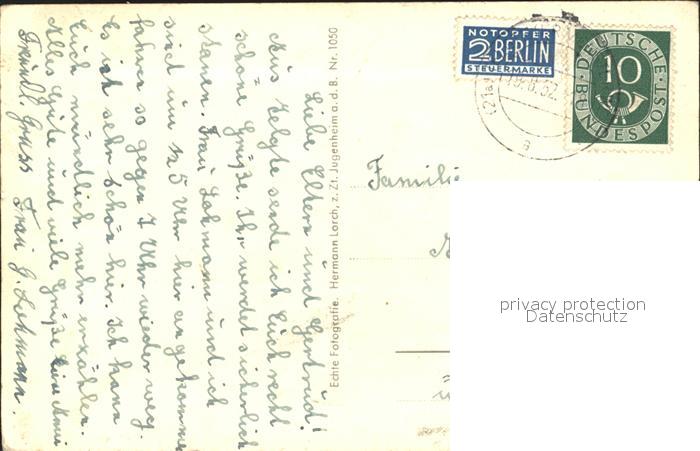 Liebe Eltern und Gertrud!
Aus Telgte sende ich Euch recht
schöne Grüße. Ihr werdet sicherlich
staunen. Frau Lohmann und ich
sind um ½ 5 Uhr hier angekommen
fahren so gegen 7 Uhr wieder weg.
Es ist sehr schön hier. Ich kann
Euch mündlich mehr erzählen.
Alles Gute und viele Grüße
Freundl. Gruss Frau G. Lohmann.
Echte Fotografie. Hermann Lorch, z. Zt. Jugenheim a. d. B. Nr. 1050
NOTOPFER
2 BERLIN
STEUERMARKE
DEUTSCHE
10
BUNDESPOST
(21a)
a
Famili
privacy protection
Datenschutz